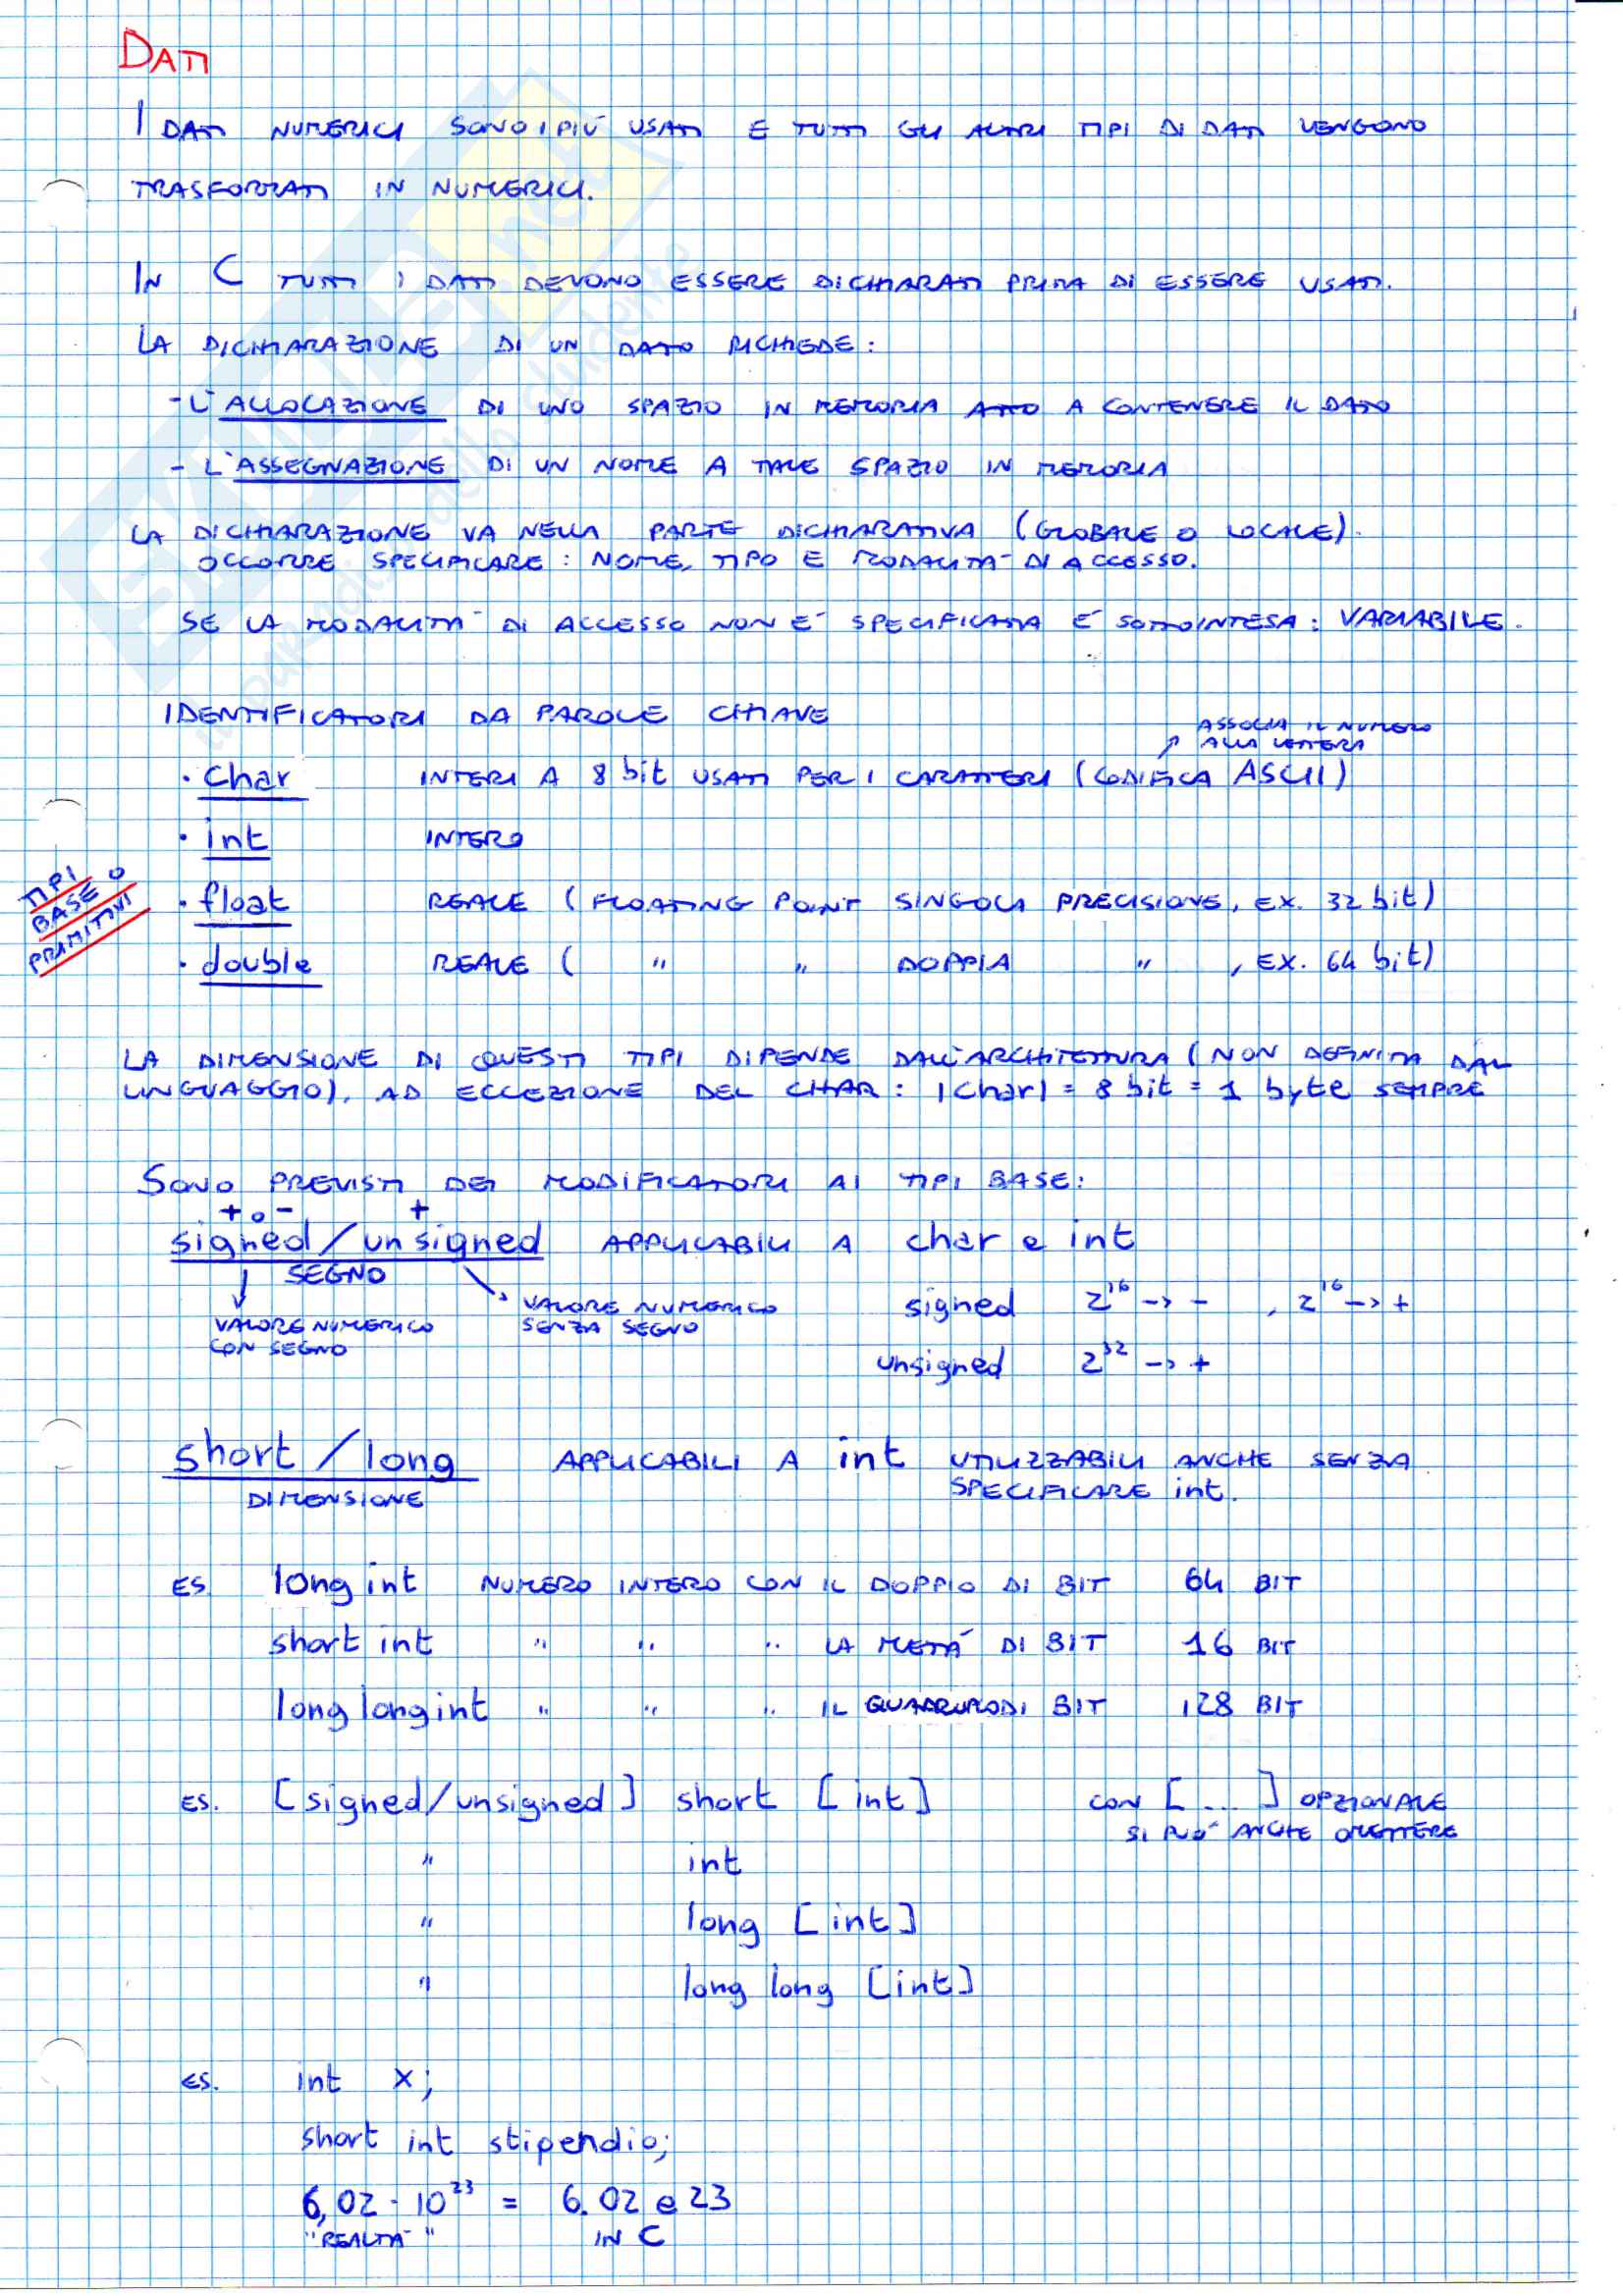 DATI
I DATI NUMERICI SONO I PIÙ USATI E TUTTI GLI ALTRI TIPI DI DATI VENGONO
TRASFORMATI IN NUMERICI.
IN C TUTTI I DATI DEVONO ESSERE DICHIARATI PRIMA DI ESSERE USATI.
LA DICHIARAZIONE DI UN DATO RICHIEDE:
- L'ALLOCAZIONE DI UNO SPAZIO IN MEMORIA ATTO A CONTENERE IL DATO
- L'ASSEGNAZIONE DI UN NOME A TALE SPAZIO IN MEMORIA
LA DICHIARAZIONE VA NELLA PARTE DICHIARATIVA (GLOBALE O LOCALE).
OCCORRE SPECIFICARE: NOME, TIPO E MODALITÀ DI ACCESSO.
SE LA MODALITÀ DI ACCESSO NON È SPECIFICATA È SOTTOINTESA: VARIABILE.
IDENTIFICATORI DA PAROLE CHIAVE
ASSOCIA IL NUMERO
↗ ALLA LETTERA
· char INTERI A 8 bit USATI PER I CARATTERI (CODIFICA ASCII)
· int INTERO
TIPI
BASE O
PRIMITIVI
· float REALE (FLOATING POINT SINGOLA PRECISIONE, EX. 32 bit)
· double REALE ( " " DOPPIA " , EX. 64 bit)
LA DIMENSIONE DI QUESTI TIPI DIPENDE DALL'ARCHITETTURA (NON DEFINITA DAL
LINGUAGGIO), AD ECCEZIONE DEL CHAR: |char| = 8 bit = 1 byte SEMPRE
SONO PREVISTI DEI MODIFICATORI AI TIPI BASE:
+ o - +
signed/unsigned APPLICABILI A char e int
SEGNO
VALORE NUMERICO
CON SEGNO
VALORE NUMERICO
SENZA SEGNO
signed 2^16 -> - , 2^16 -> +
unsigned 2^32 -> +
short/long APPLICABILI A int UTILIZZABILI ANCHE SENZA
SPECIFICARE int.
DIMENSIONE
ES. long int NUMERO INTERO CON IL DOPPIO DI BIT 64 BIT
short int " " " LA METÀ DI BIT 16 BIT
long long int " " " IL QUADRUPLO DI BIT 128 BIT
ES. [signed/unsigned] short [int] CON [...] OPZIONALE
SI PUÒ ANCHE OMETTERE
" int
" long [int]
" long long [int]
ES. int x;
short int stipendio;
6,02 · 10^23 = 6.02 e 23
"REALTÀ" IN C
SKUOLA.net
il paradiso dello studente